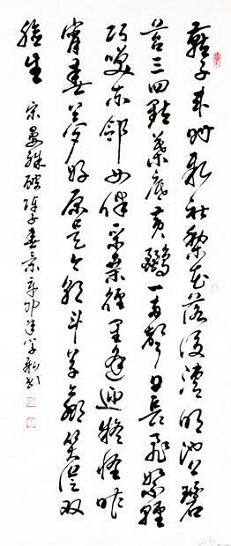 燕子来时新社梨花落后清明池上碧
苔三四点叶底黄鹂一两声日长飞絮轻
巧笑东邻女伴采桑径里逢迎疑怪昨
宵春梦好原是今朝斗草赢笑从双
脸生
宋晏殊破阵子春景辛卯年